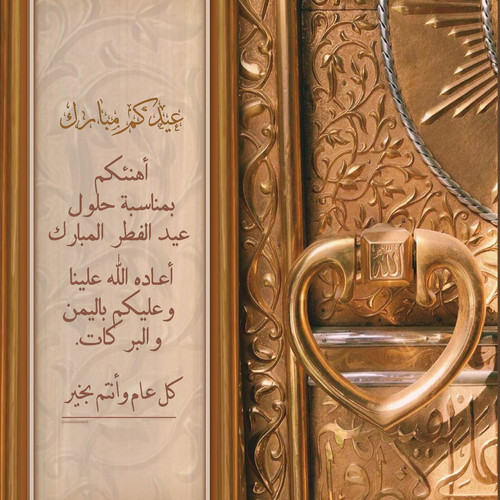 عيدكم مبارك
أهنئكم
بمناسبة حلول
عيد الفطر المبارك
أعاده الله علينا
وعليكم باليمن
والبركات.
كل عام وأنتم بخير
الله